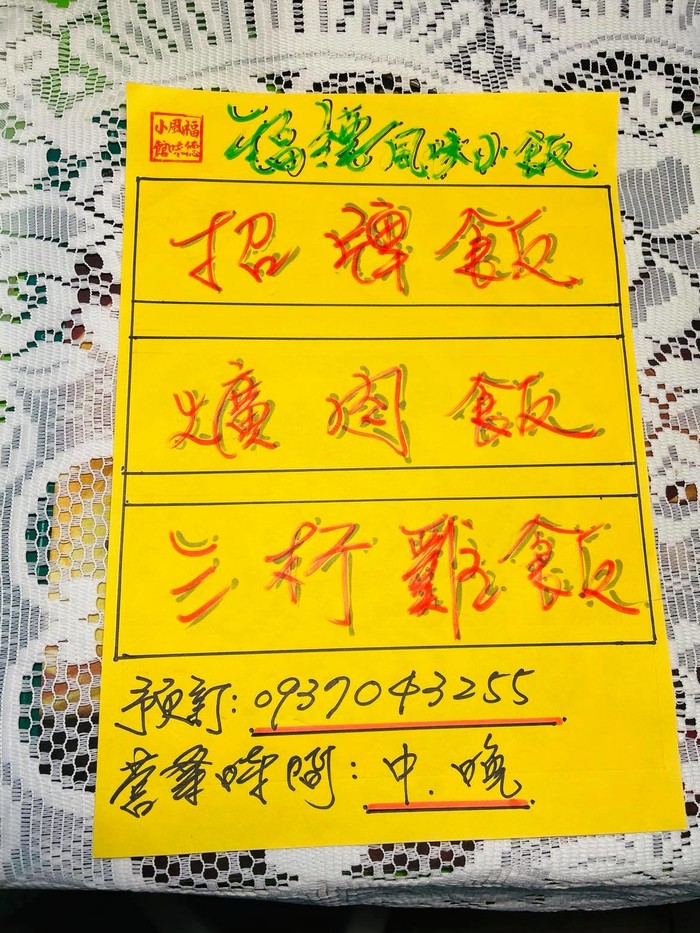 福德風味小館
福德風味小館
招牌飯
爌肉飯
三杯雞飯
預訂:0937043255
營業時間:中.晚